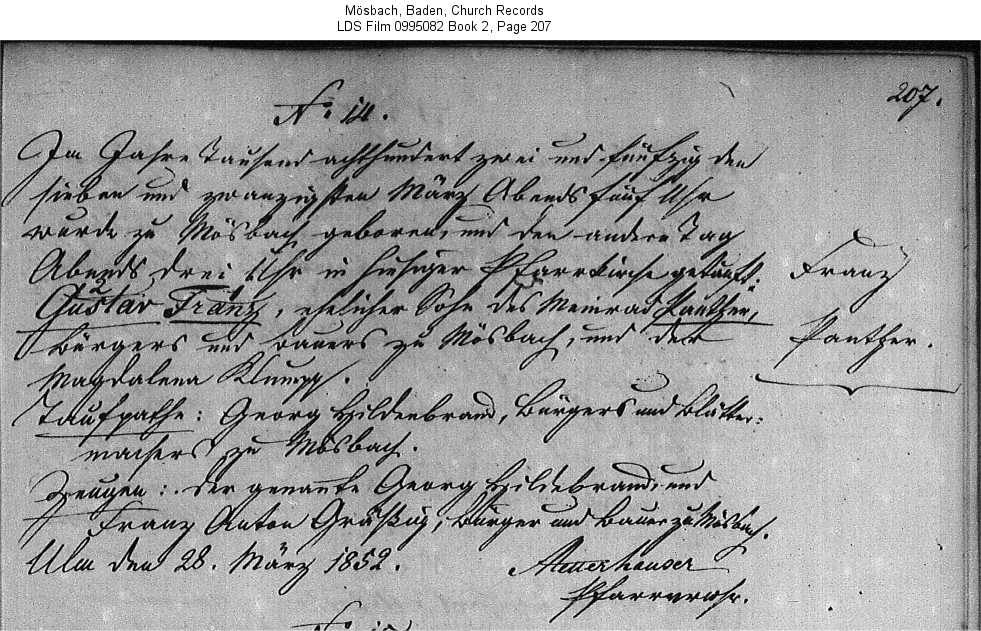 Mösbach, Baden, Church Records
LDS Film 0995082 Book 2, Page 207
207.
N: 14.
Im Jahre Tausend achthundert zwei und fünfzig den
sieben und zwanzigsten März Abends fünf Uhr
wurde zu Mösbach geboren, und den andern Tag
Abends drei Uhr in hiesiger Pfarrkirche getauft:
2 1
Gustav Franz, ehelicher Sohn des Meinrad Panther,
Bürgers und Bauers zu Mösbach, und der
Magdalena Klumpp.
Franz
Panther.
Taufpathe: Georg Hildenbrand, Bürgers und
machers zu Mösbach.
Zeugen: Der genannte Georg Hildebrand, und
Franz Anton, Bürger und Bauer zu Mösbach.
Ulm den 28. März 1852.